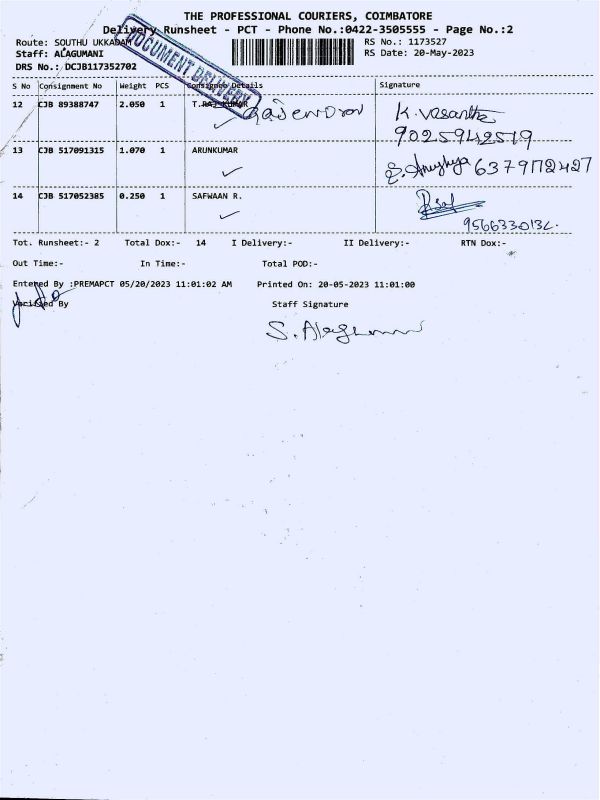 THE PROFESSIONAL COURIERS, COIMBATORE
Delivery Runsheet - PCT - Phone No.:0422-3505555 - Page No.:2
Route: SOUTHU UKKADAM RS No.: 1173527
Staff: ALAGUMANI RS Date: 20-May-2023
DRS No.: DCJB117352702
DOCUMENT DELIVERY
S No Consignment No Weight PCS Consignee Details Signature
12 CJB 89388747 2.050 1 T.RAJ KUMAR Rajendran K. Vasantha
9025942519
13 CJB 517091315 1.070 1 ARUNKUMAR 6379172427
14 CJB 517052385 0.250 1 SAFWAAN R.
9566330132.
Tot. Runsheet:- 2 Total Dox:- 14 I Delivery:- II Delivery:- RTN Dox:-
Out Time:- In Time:- Total POD:-
Entered By :PREMAPCT 05/20/2023 11:01:02 AM Printed On: 20-05-2023 11:01:00
Verified By Staff Signature